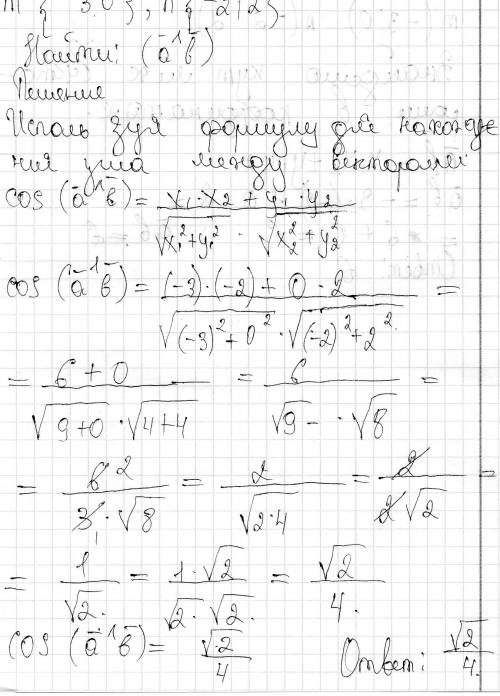 m{-3;0}, n{-2;2}
Найти: (a^b)
Решение
Используя формулу для нахожде
ния угла между векторами:
cos (a^b) = (x₁·x₂ + y₁·y₂)/(√(x₁²+y₁²) · √(x₂²+y₂²))
cos (a^b) = ((-3)·(-2) + 0·2)/(√((-3)²+0²) · √((-2)²+2²)) =
= (6+0)/(√(9+0) · √(4+4)) = 6/(√9 · √8) =
= 6 2/(3 1 · √8) = 2/√(2·4) = 2/(2√2) =
= 1/√2 = (1·√2)/(√2·√2) = √2/4.
cos (a^b) = √2/4 Ответ: √2/4.